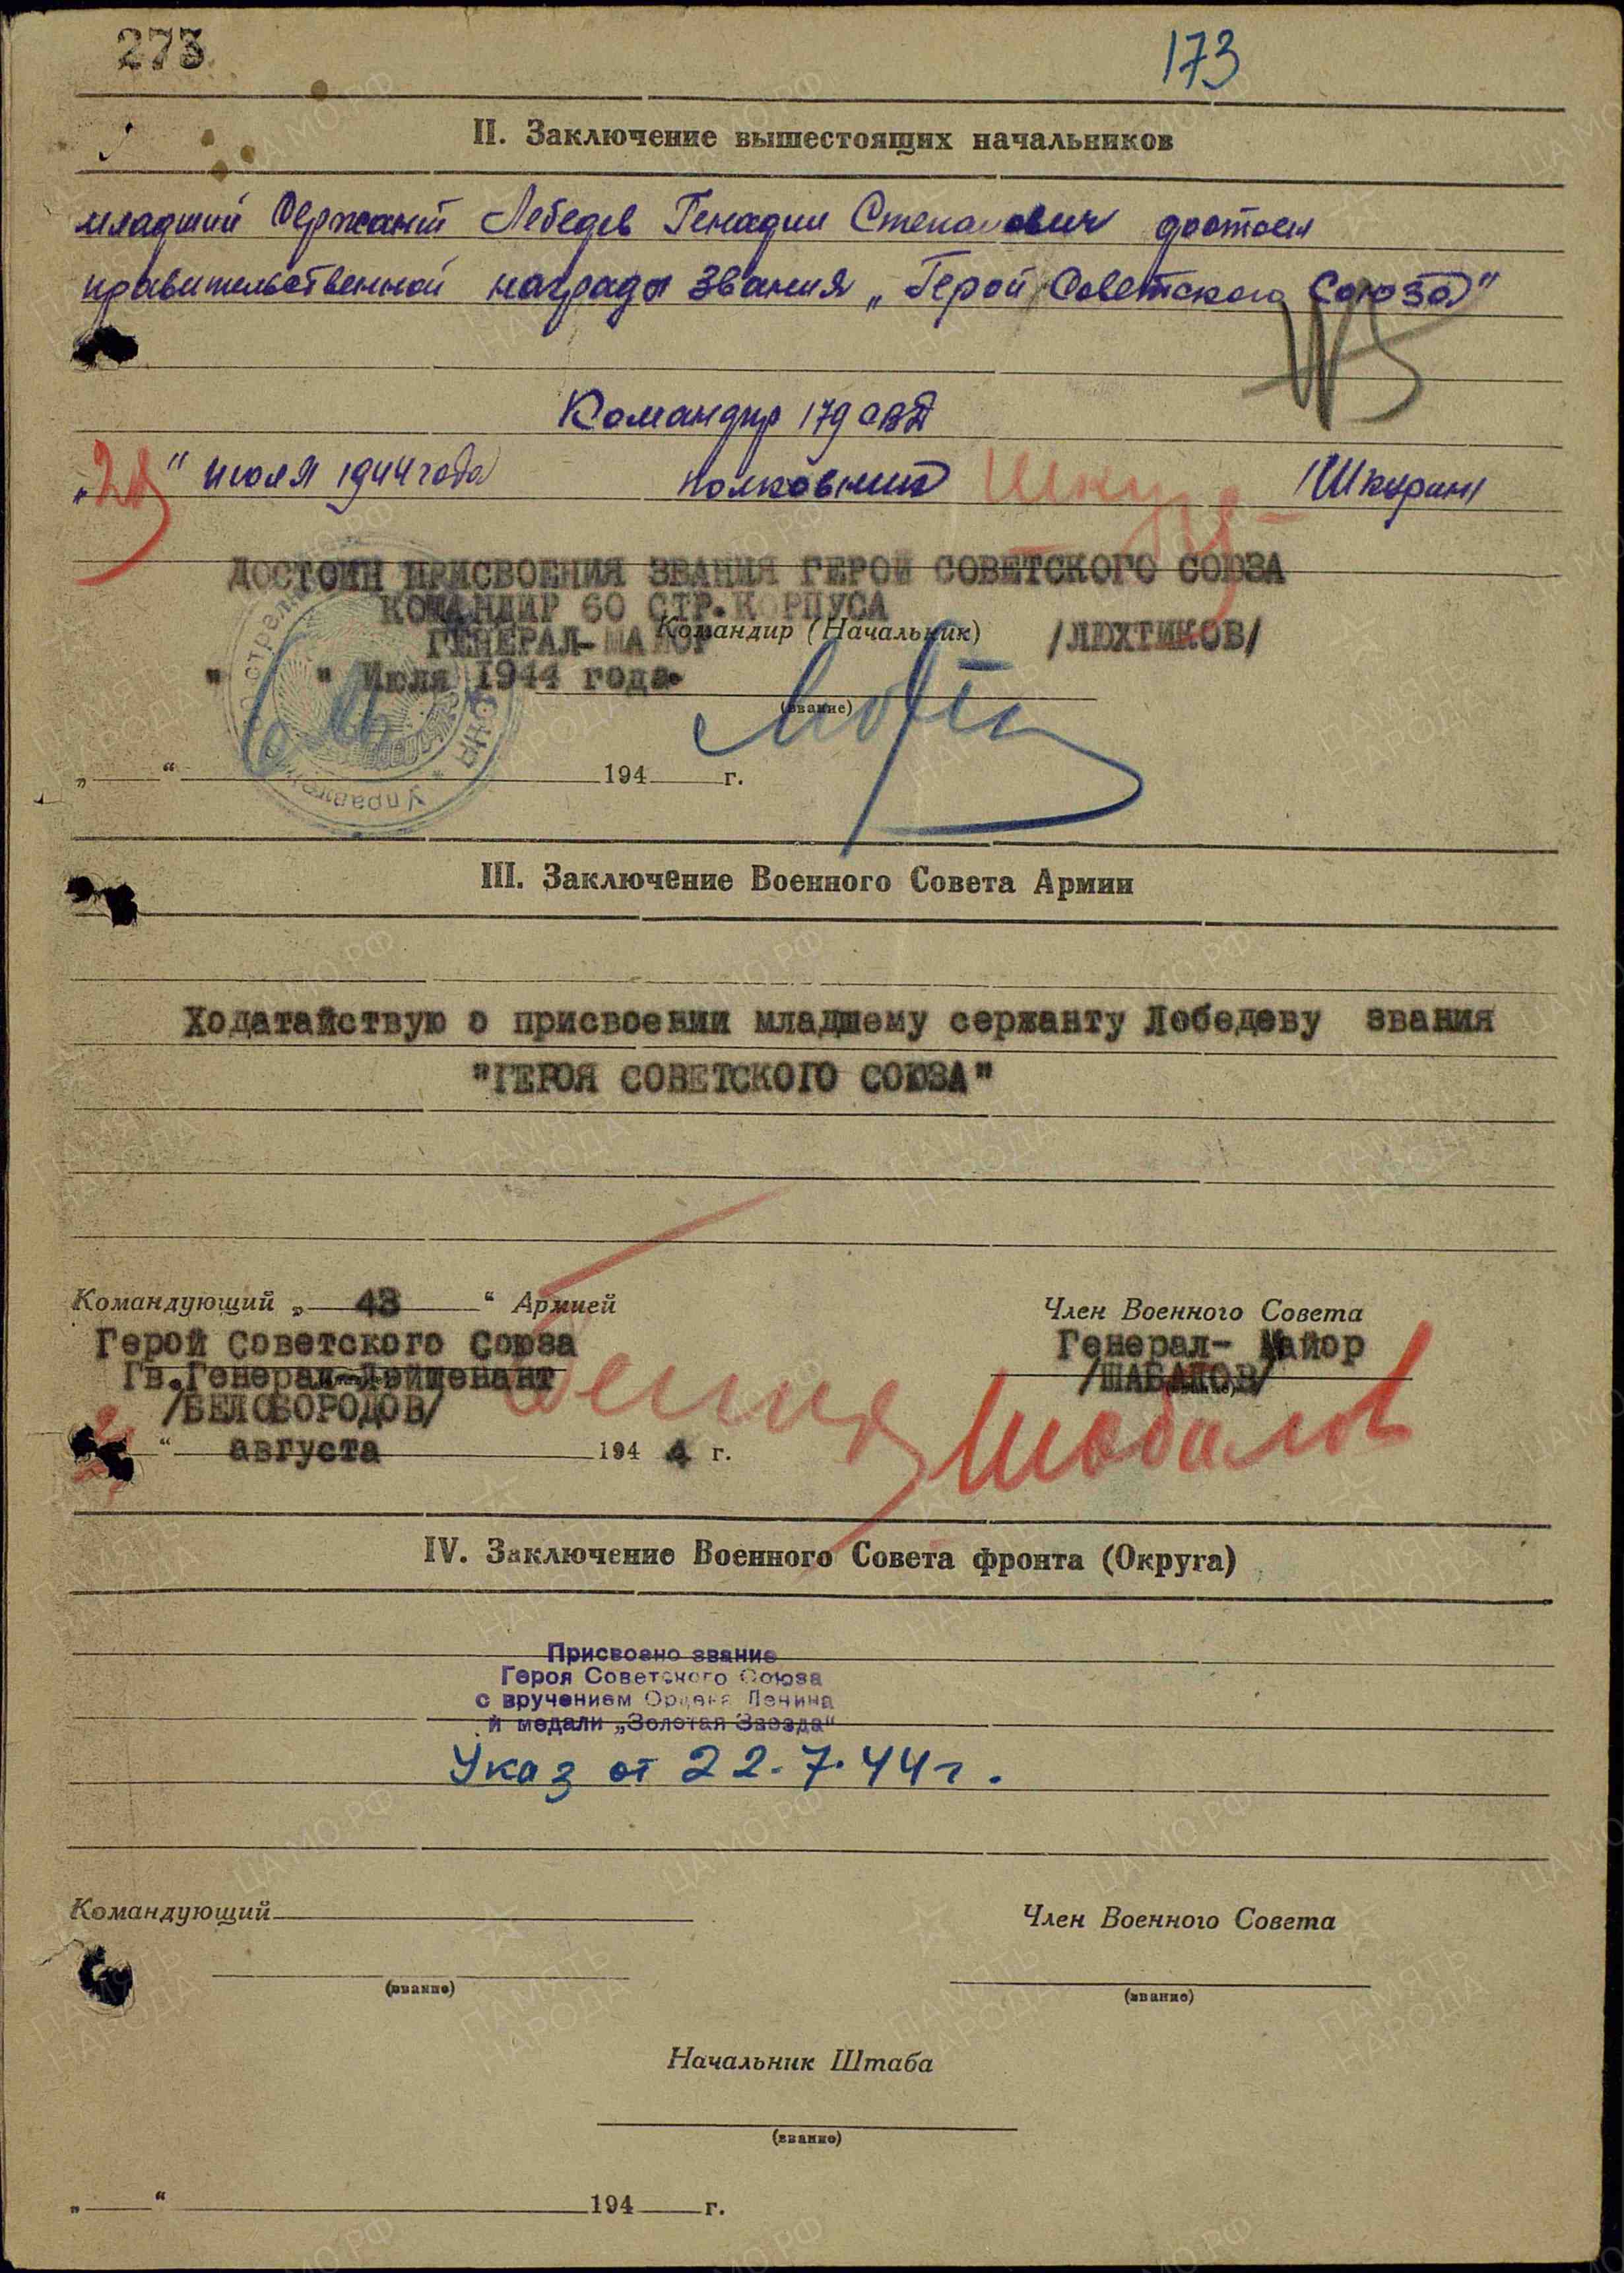 273
173
II. Заключение вышестоящих начальников
младший сержант Лебедев Генадии Степанович достоен
правительственной награды звания „Герой Советского Союза"
Командир 179 СВД
" июля 1944 года полковник /Шкурин/
ДОСТОИН ПРИСВОЕНИЯ ЗВАНИЯ ГЕРОЙ СОВЕТСКОГО СОЮЗА
КОМАНДИР 60 СТР.КОРПУСА
Командир (Начальник)
ГЕНЕРАЛ-МАЙОР /ЛЮХТИКОВ/
" " Июля 1944 года.
(звание)
„ “ 194 г.
III. Заключение Военного Совета Армии
Ходатайствую о присвоении младшему сержанту Лебедеву звания
"ГЕРОЯ СОВЕТСКОГО СОЮЗА"
Командующий „ 43 “ Армией
Член Военного Совета
Герой Советского Союза
Генерал- Майор
Гв.Генерал-Лейтенант
/ШАБАЛОВ/
/БЕЛОБОРОДОВ/
Шабалов
“ августа 194 4 г.
IV. Заключение Военного Совета фронта (Округа)
Присвоено звание
Героя Советского Союза
с вручением Ордена Ленина
и медали „Золотая Звезда“
Указ от 22.7.44г.
Командующий
Член Военного Совета
(звание)
(звание)
Начальник Штаба
(звание)
„ “ 194 г.